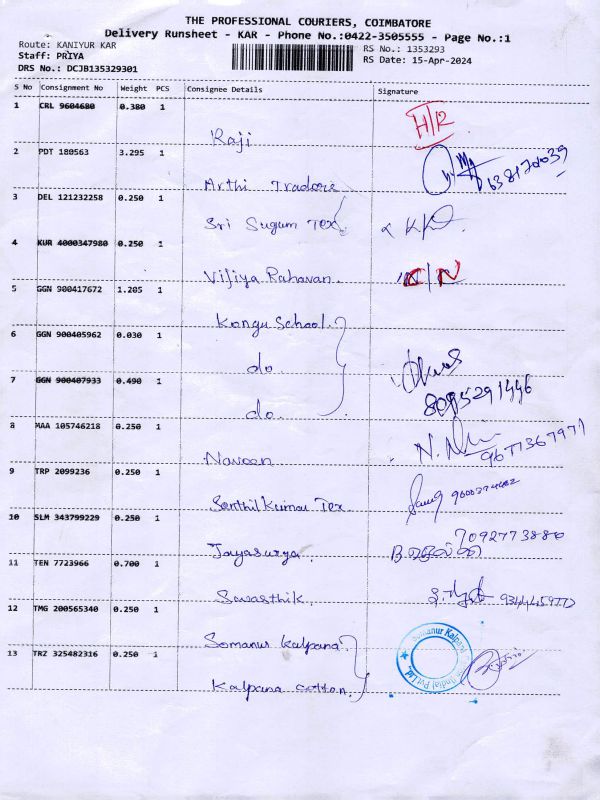 THE PROFESSIONAL COURIERS, COIMBATORE
Delivery Runsheet - KAR - Phone No.:0422-3505555 - Page No.:1
Route: KANIYUR KAR
RS No.: 1353293
Staff: PRIYA
RS Date: 15-Apr-2024
DRS No.: DCJB135329301
S No Consignment No Weight PCS Consignee Details Signature
1 CRL 9604680 0.380 1
Raji H/R
2 PDT 180563 3.295 1
Arthi Tradore
3 DEL 121232258 0.250 1
Sri Sugum Tex
4 KUR 4000347980 0.250 1
Vijiya Rahavan.
5 GGN 900417672 1.205 1
Kangu School.
6 GGN 900405962 0.030 1
do.
7 GGN 900407933 0.490 1
do. 8095291446
8 MAA 105746218 0.250 1
Naveen 9677367971
9 TRP 2099236 0.250 1
Senthil Kumar Tex.
10 SLM 343799229 0.250 1
Jayasurya. 7092773880
11 TEN 7723966 0.700 1
Swasthik.
12 TMG 200565340 0.250 1
Somanur Kalpana
13 TRZ 325482316 0.250 1
Kalpana cotton.
Somanur Kalpana (India) Pvt Ltd